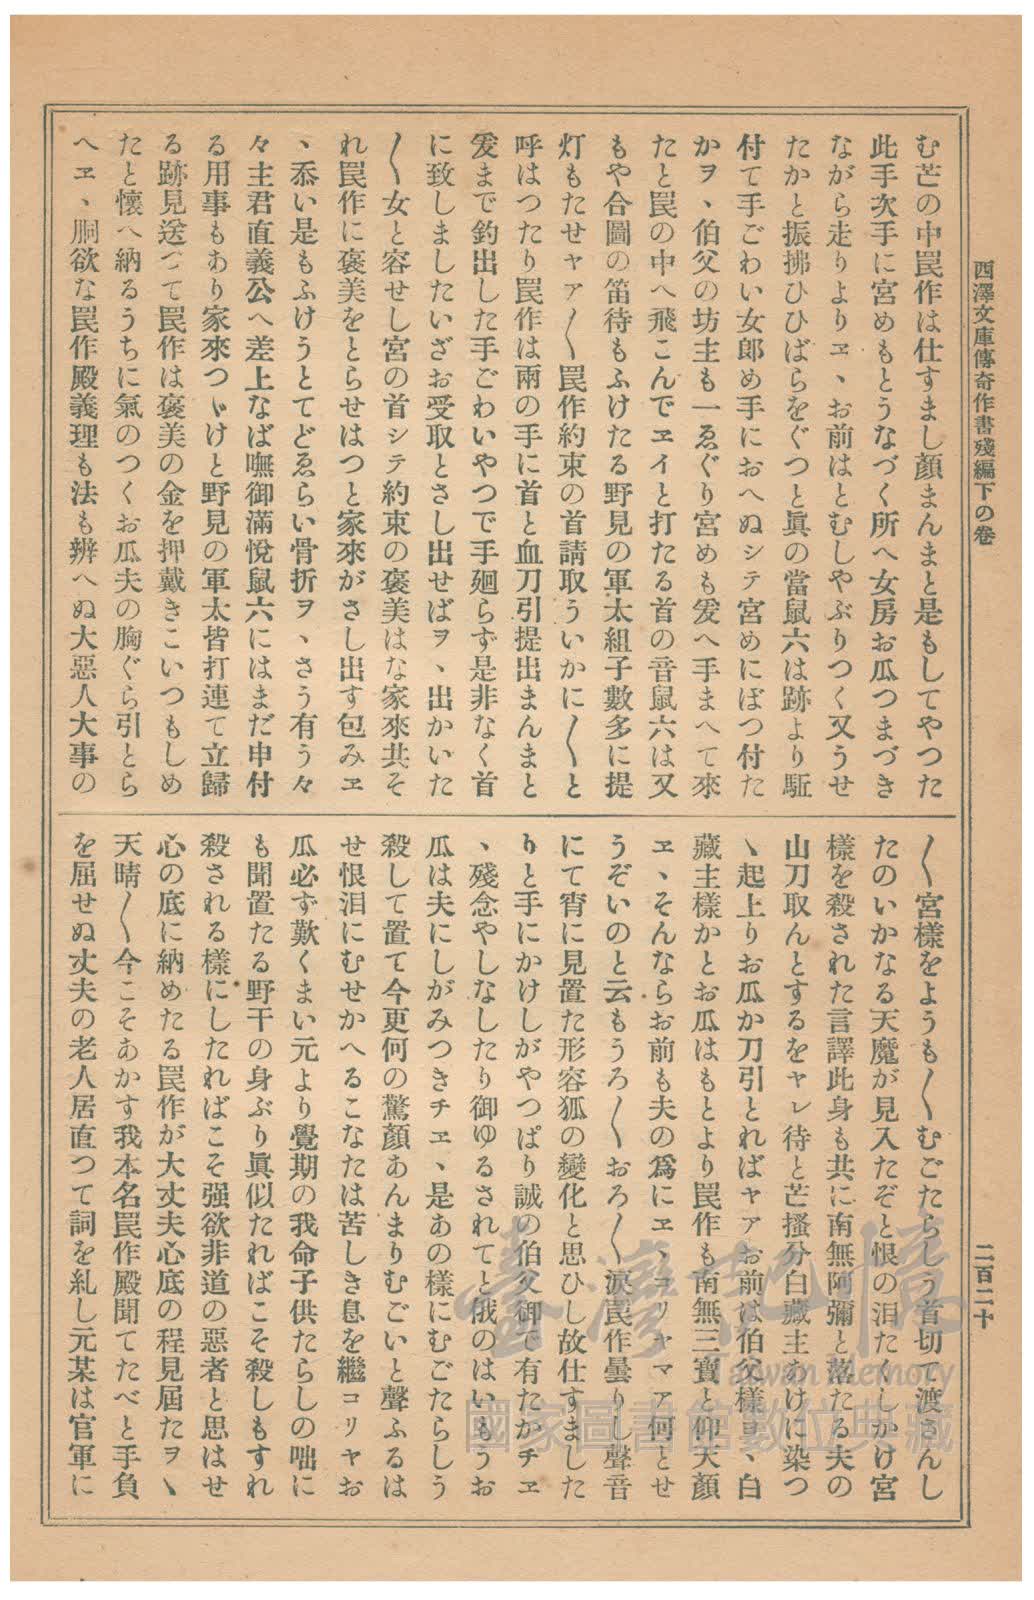 西澤文庫傳奇作書殘編下の卷
二百二十
む芒の中罠作は仕すまし顏まんまと是もしてやつた
此手次手に宮めもとうなづく所へ女房お瓜つまづき
ながら走りよりヱヽお前はとむしやぶりつく又うせ
たかと振拂ひひばらをぐつと眞の當鼠六は跡より駈
付て手ごわい女郎め手におへぬシテ宮めにぼつ付た
かヲヽ伯父の坊主も一ゑぐり宮めも爰へ手まへて來
たと罠の中へ飛こんでヱイと打たる首の音鼠六は又
もや合圖の笛待もふけたる野見の軍太組子數多に提
灯もたせャア〳〵罠作約束の首請取ういかに〳〵と
呼はつたり罠作は兩の手に首と血刀引提出まんまと
爰まで釣出した手ごわいやつで手廻らず是非なく首
に致しましたいざお受取とさし出せばヲヽ出かいた
〳〵女と容せし宮の首シテ約束の褒美はな家來共そ
れ罠作に褒美をとらせはつと家來がさし出す包みヱ
ヽ忝い是もふけうとてどゑらい骨折ヲヽさう有う々
々主君直義公へ差上なば嘸御滿悅鼠六にはまだ申付
る用事もあり家來つゞけと野見の軍太皆打連て立歸
る跡見送つて罠作は褒美の金を押戴きこいつもしめ
たと懷へ納るうちに氣のつくお瓜夫の胸ぐら引とら
へヱヽ胴欲な罠作殿義理も法も辨へぬ大惡人大事の
〳〵宮樣をようも〳〵むごたらしう首切て渡さんし
たのいかなる天魔が見入たぞと恨の泪たくしかけ宮
樣を殺された言譯此身も共に南無阿彌と落たる夫の
山刀取んとするをャレ待と芒搔分白藏主あけに染つ
ヽ起上りお瓜か刀引とればャアお前は伯父樣ヨヽ白
藏主樣かとお瓜はもとより罠作も南無三寶と仰天顏
ヱヽそんならお前も夫の爲にヱヽコリャマア何とせ
うぞいのと云もうろ〳〵おろ〳〵淚罠作曇りし聲音
にて宵に見置た形容狐の變化と思ひし故仕すました
りと手にかけしがやつぱり誠の伯父御で有たかチヱ
ヽ殘念やしなしたり御ゆるされてと俄のはいもうお
瓜は夫にしがみつきチヱヽ是あの樣にむごたらしう
殺して置て今更何の驚顏あんまりむごいと聲ふるは
せ恨泪にむせかへるこなたは苦しき息を繼コリャお
瓜必ず歎くまい元より覺期の我命子供たらしの咄に
も聞置たる野干の身ぶり眞似たればこそ殺しもすれ
殺される樣にしたればこそ强欲非道の惡者と思はせ
心の底に納めたる罠作が大丈夫心底の程見屆たヲヽ
天晴〳〵今こそあかす我本名罠作殿聞てたべと手負
を屈せぬ丈夫の老人居直つて詞を糺し元某は官軍に
臺灣記憶
Taiwan Memory
國家圖書館數位典藏